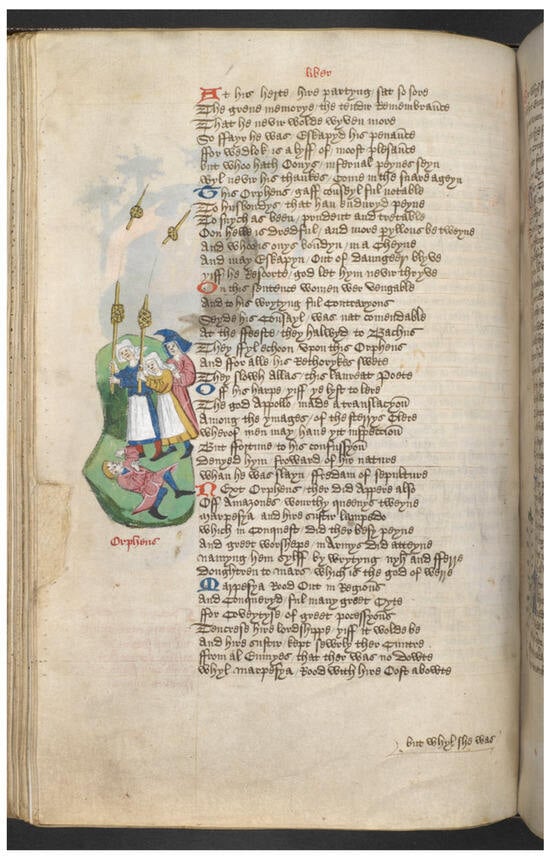 liber
At his herte hire partyng sat so sore
The grene memorye the tendir Remembraūce
That he nevir wolde wyven more
So ffayr he was Eskapyd his penaūce
ffor wedlok is a lyff of moost plesaūce
but whoo hath Oonys infernal peynes seyn
wyl nevir his thankes Come in the snare ageyn
This Orpheus gaff counseyl ful notable
To husbondys that han enduryd peyne
To suych as been prudent and tretable
Oon helle is dredful and more pyllous be tweyne
And whoo is onys boūdyn in a Cheyne
And may Eskapyn Out of daungeer blyve
yiff he Resorte god let hym nevir thryve
On this sentence women wer vengable
And to his wrytyng ful Contraryous
Seyde his Counsayl was nat comēdable
At the ffeeste they halwyd to Bachus
They ffyl echoon upon this Orpheus
And ffor alle his Rethorykes swete
They slowh allas this laureat Poete
Off his harpe yiff ye lyst to lere
The god Appollo made a translacyoū
Among the ymages of the sterrys Clere
wherof men may have yit inspeccioū
But ffortune to his confussyoū
denyed hym ffroward of hir nature
whan he was slayn ffredam of sepulture
Next Orpheus ther did Appere also
Off Amazones wourthy queenys tweyne
marpesya and hire sustir lampedo
which in Conquest did ther besy peyne
And greet worshepe in Armys did atteyne
namyng hem sylff by wrytyng nyh and fferre
doughtren to mars which is the god of werre
Marpesya Rood Out in Regions
And Conqueryd ful many greet Cyte
ffor Coveytyse of greet pocessyons
Tencrese hire lordshippe yiff it wolde be
And hire sustir kept sewrly ther Cuntre
ffrom al Enmyes that ther was no dowte
whyl marpesya Rood with hire Oost abowte
Orpheus
but whyl she was